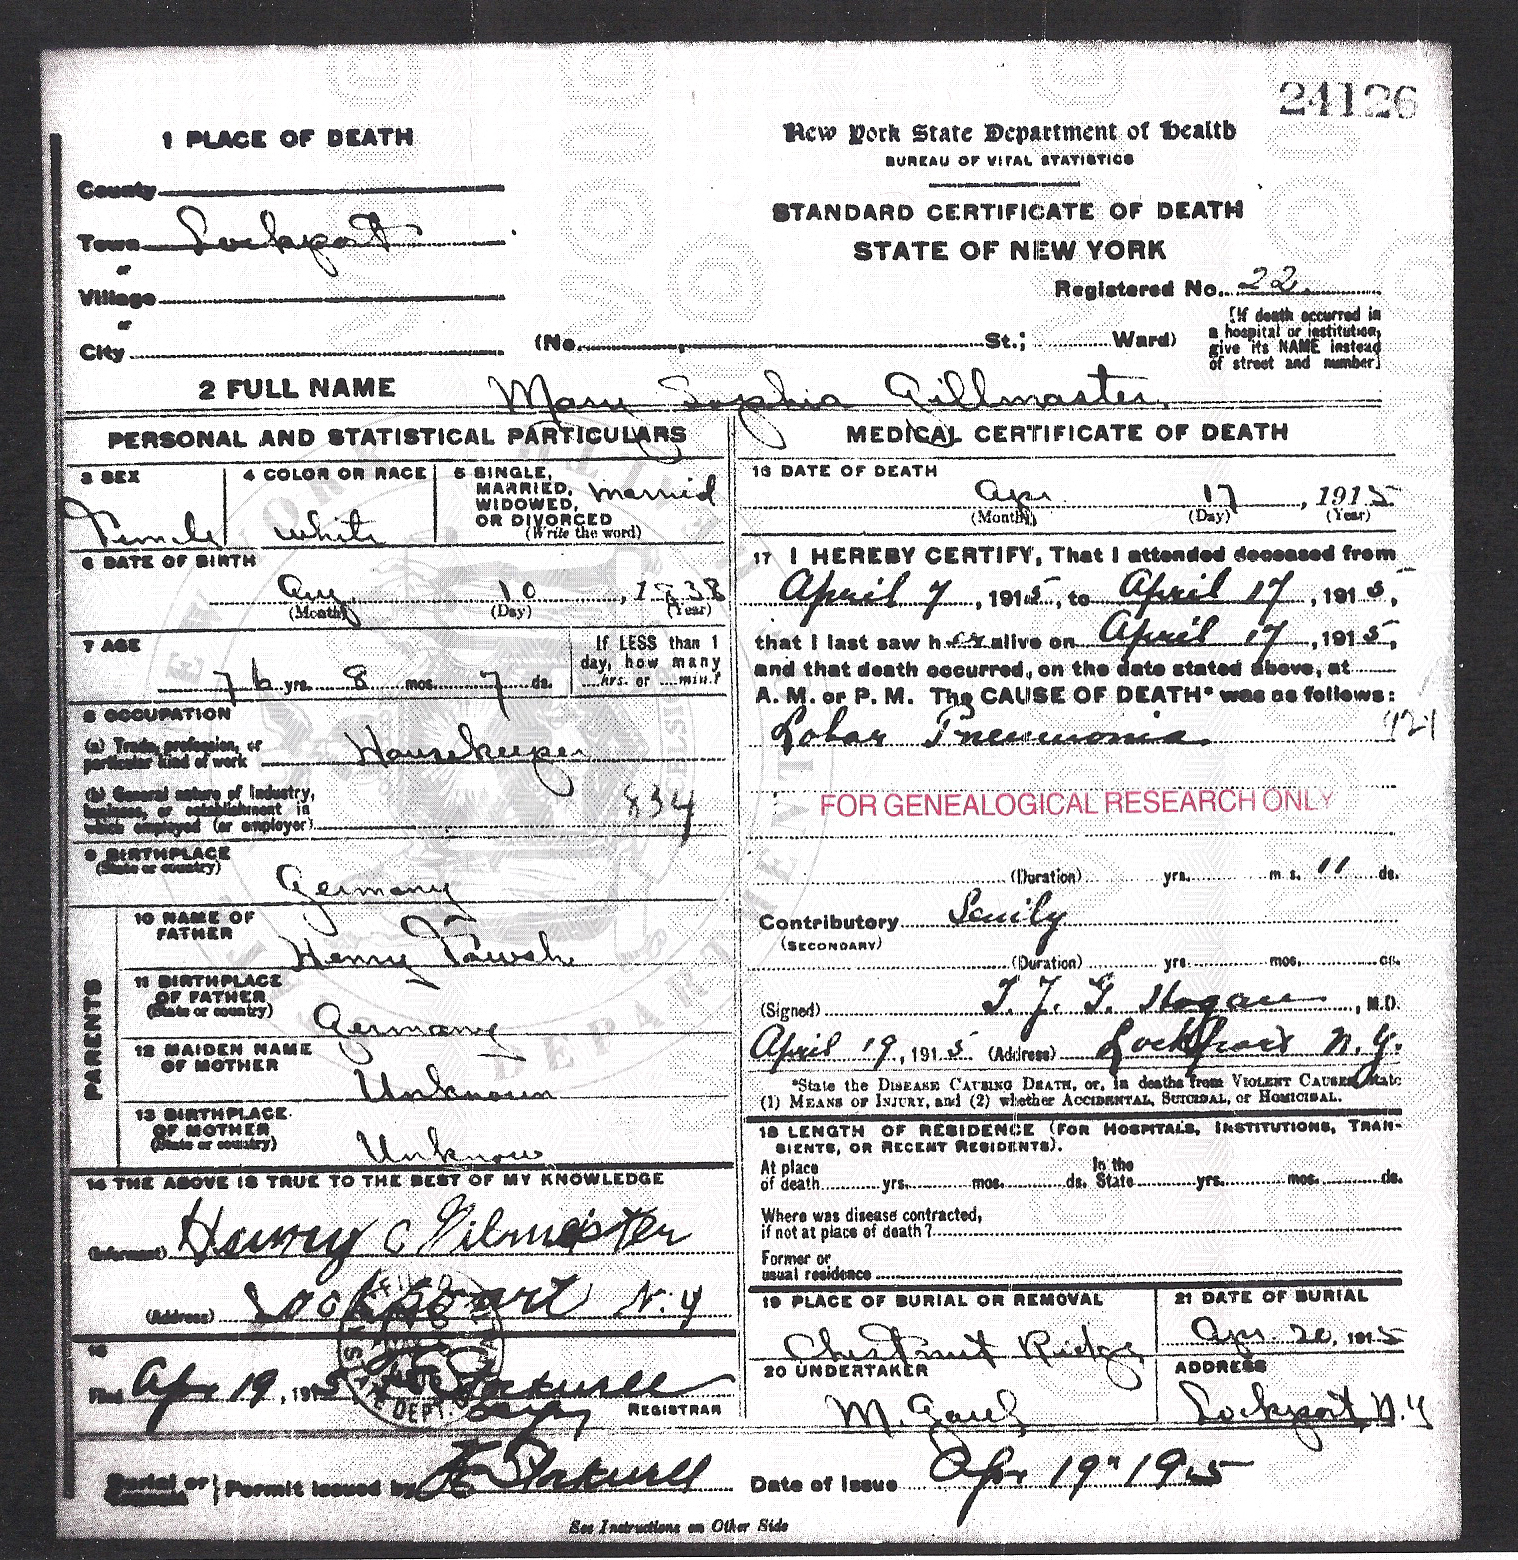 24126
1 PLACE OF DEATH
New York State Department of Health
BUREAU OF VITAL STATISTICS
County
STANDARD CERTIFICATE OF DEATH
Town Lockport
or
STATE OF NEW YORK
Village
or
Registered No. 22.
City
(No. St.; Ward)
[If death occurred in
a hospital or institution,
give its NAME instead
of street and number]
2 FULL NAME Mary Sophia Gillmaster
PERSONAL AND STATISTICAL PARTICULARS
3 SEX
Female
4 COLOR OR RACE
White
5 SINGLE,
MARRIED,
WIDOWED,
OR DIVORCED
(Write the word)
Married
6 DATE OF BIRTH
Aug. 10, 1838
(Month) (Day) (Year)
7 AGE
76 yrs. 8 mos. 7 ds.
If LESS than 1
day, how many
hrs. or min.?
8 OCCUPATION
(a) Trade, profession, or
particular kind of work Housekeeper
(b) General nature of industry,
business, or establishment in
which employed (or employer)
834
9 BIRTHPLACE
(State or country)
Germany
PARENTS
10 NAME OF
FATHER
Henry
11 BIRTHPLACE
OF FATHER
(State or country)
Germany
12 MAIDEN NAME
OF MOTHER
Unknown
13 BIRTHPLACE
OF MOTHER
(State or country)
Unknown
14 THE ABOVE IS TRUE TO THE BEST OF MY KNOWLEDGE
(Informant) Henry C Gilmaster
(Address) Lockport N.Y
15
Filed Apr 19, 1915
REGISTRAR
MEDICAL CERTIFICATE OF DEATH
16 DATE OF DEATH
Apr. 17, 1915
(Month) (Day) (Year)
17 I HEREBY CERTIFY, That I attended deceased from
April 7, 1915, to April 17, 1915,
that I last saw her alive on April 17, 1915,
and that death occurred, on the date stated above, at
A. M. or P. M. The CAUSE OF DEATH* was as follows:
Lobar Pneumonia.
FOR GENEALOGICAL RESEARCH ONLY
(Duration) yrs. mos. 11 ds.
Contributory Senily
(SECONDARY)
(Duration) yrs. mos. ds.
(Signed) T. J. G. Hogan, M.D.
April 19, 1915 (Address) Lockport N.Y.
*State the DISEASE CAUSING DEATH, or, in deaths from VIOLENT CAUSES, state
(1) MEANS OF INJURY, and (2) whether ACCIDENTAL, SUICIDAL, or HOMICIDAL.
18 LENGTH OF RESIDENCE (FOR HOSPITALS, INSTITUTIONS, TRAN-
SIENTS, OR RECENT RESIDENTS).
At place
of death yrs. mos. ds.
In the
State yrs. mos. ds.
Where was disease contracted,
if not at place of death?
Former or
usual residence
19 PLACE OF BURIAL OR REMOVAL
Chestnut Ridge
21 DATE OF BURIAL
Apr 20, 1915
20 UNDERTAKER
ADDRESS
Lockport, N.Y
Burial or
Permit issued by
Date of Issue Apr 19" 1915
See Instructions on Other Side